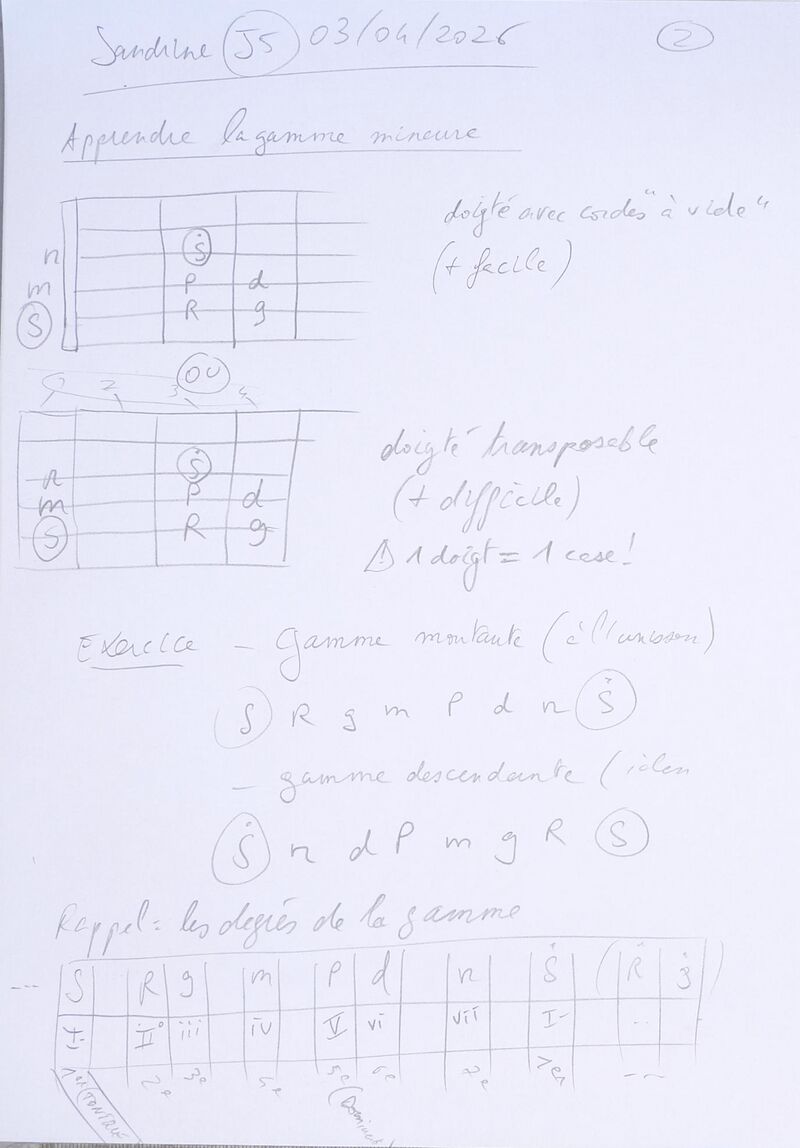 Sandrine J5 03/04/2026 2
Apprendre la gamme mineure
doigté avec cordes "à vide"
(+ facile)
Ṡ
n
m P d
S R g
OU
1 2 3 4
doigté transposable
(+ difficile)
⚠ 1 doigt = 1 case !
Ṡ
n
m P d
S R g
Exercice - Gamme montante (à l'unisson)
S R g m P d n Ṡ
- gamme descendante (idem
Ṡ n d P m g R S
Rappel = les degrés de la gamme
--- S R g m P d n Ṡ (Ṙ ġ)
II° iii iv V vi vii I- ..
1er 2e 3e 4e 5e 6e 7e 1er ---
(TONIQUE